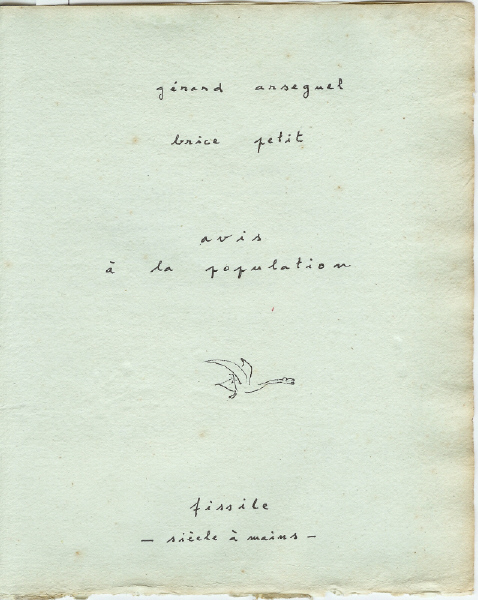 gérard arseguel
brice petit
avis
à la population
fissile
— siècle à mains —